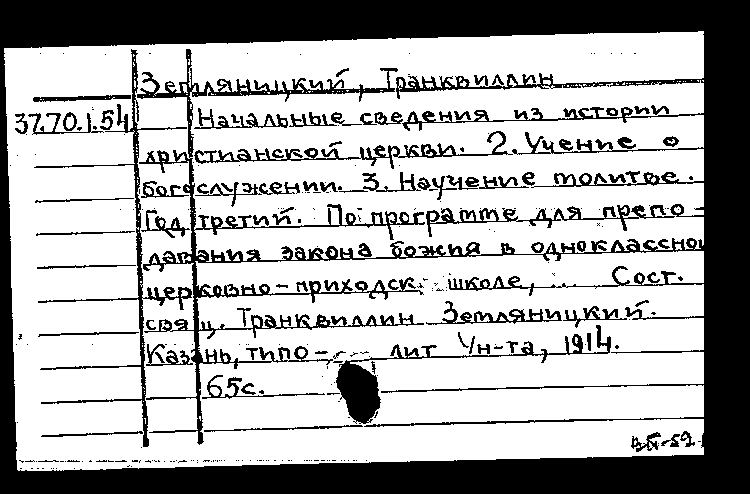 Земляницкий, Транквиллин
37.70.1.54 Начальные сведения из истории
христианской церкви. 2. Учение о
богослужении. 3. Научение молитве.
Год третий. По программе для препо-
давания закона божия в одноклассной
церковно-приходск. школе, ... Сост.
свящ. Транквиллин Земляницкий.
Казань, типо- лит Ун-та, 1914.
65с.